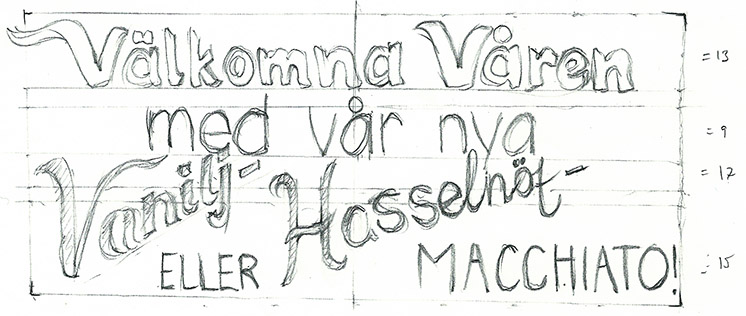 Välkomna Våren = 13
med vår nya = 9
Vanilj- Hasselnöt- = 12
ELLER MACCHIATO! = 15